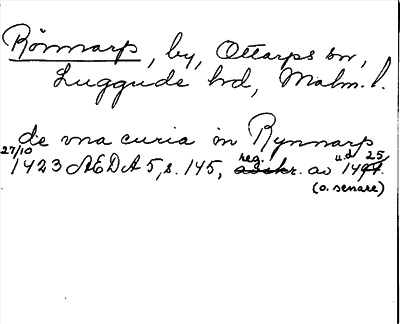 Rönnarp, by, Ottarps sn,
Luggude hd, Malm. l.
de vna curia in Rynnarp
27/10 1423 AEDA 5, s. 145, reg. av u.d. 1425
(o. senare)